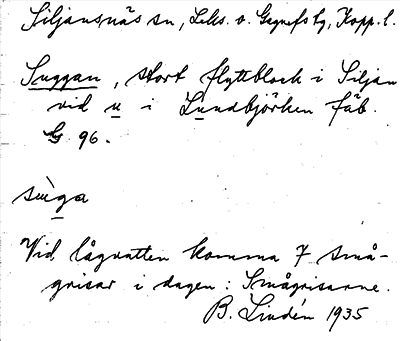 Siljansnäs sn, Leks. o. Gagnefs tg, Kopp. l.
Suggan, stort flyttblock i Siljan
vid u i Lundbjörken fäb.
G. 96.
sùga
Vid lågvatten komma 7 små-
grisar i dagen: Smågrisarne.
B. Lindén 1935